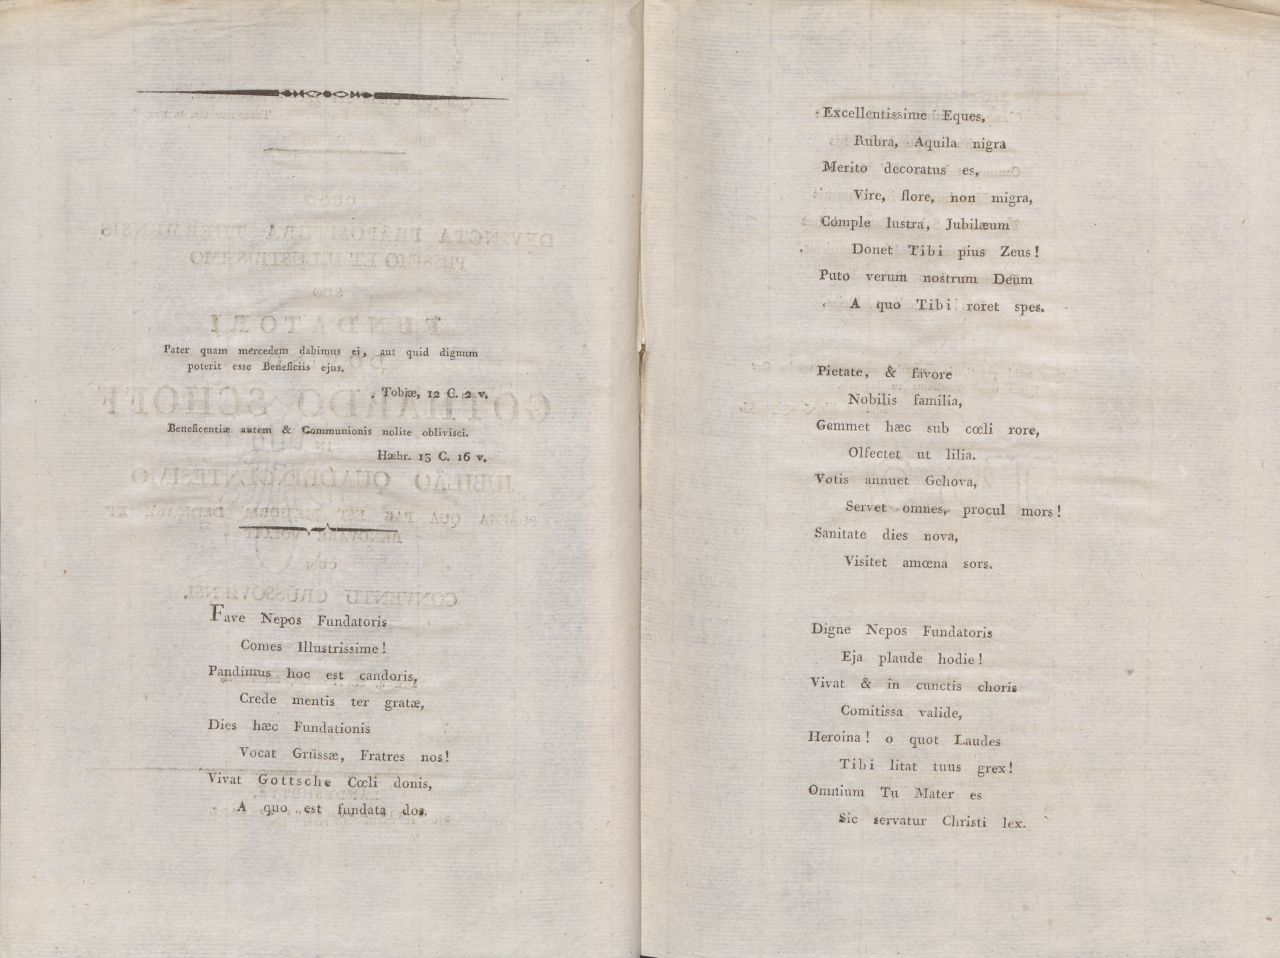 Pater quam mercedem dabimus ei, aut quid dignum
poterit esse Beneficiis ejus.
Tobiæ, 12 C. 2 v.
Beneficentiæ autem & Communionis nolite oblivisci.
Hæbr. 13 C. 16 v.
Fave Nepos Fundatoris
Comes Illustrissime!
Pandimus hoc est candoris,
Crede mentis ter gratæ,
Dies hæc Fundationis
Vocat Grüssæ, Fratres nos!
Vivat Gottsche Cœli donis,
A quo est fundata dos.
Excellentissime Eques,
Rubra, Aquila nigra
Merito decoratus es,
Vire, flore, non migra,
Comple lustra, Jubilæum
Donet Tibi pius Zeus!
Puto verum nostrum Deum
A quo Tibi roret spes.
Pietate, & favore
Nobilis familia,
Gemmet hæc sub cœli rore,
Olfectet ut lilia.
Votis annuet Gehova,
Servet omnes, procul mors!
Sanitate dies nova,
Visitet amœna sors.
Digne Nepos Fundatoris
Eja plaude hodie!
Vivat & in cunctis choris
Comitissa valide,
Heroina! o quot Laudes
Tibi litat tuus grex!
Omnium Tu Mater es
Sic servatur Christi lex.